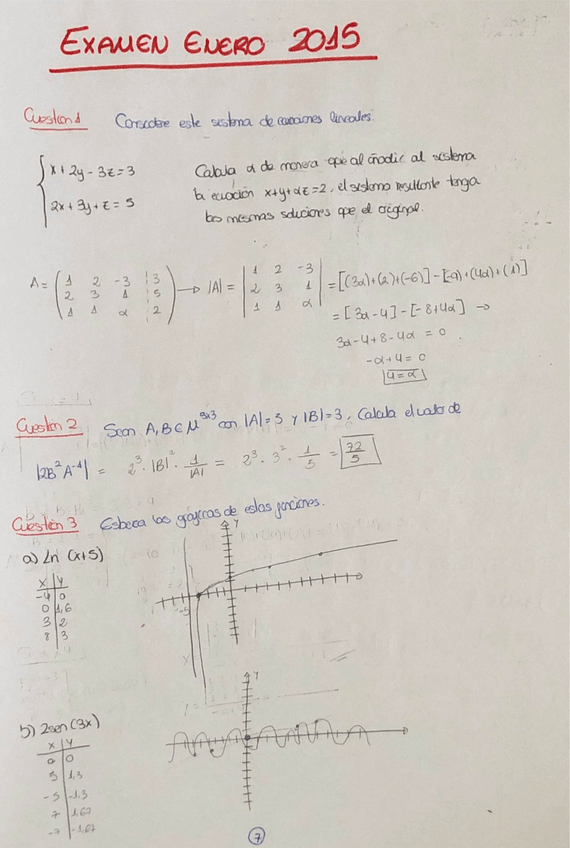 EXAMEN ENERO 2015
Cuestión 1 Considere este sistema de ecuaciones lineales.
x + 2y - 3z = 3
2x + 3y + z = 5
Calcula α de manera que al añadir al sistema
la ecuación x+y+αz=2, el sistema resultante tenga
las mismas soluciones que el original.
A = ( 1 2 -3 | 3
2 3 1 | 5
1 1 α | 2 ) → |A| = | 1 2 -3
2 3 1
1 1 α | = [(3α)+(2)+(-6)] - [-9)+(4α)+(1)]
= [3α-4] - [-8+4α] →
3α-4+8-4α = 0
-α+4 = 0
4=α
Cuestión 2 Sean A, B ∈ M^3x3 con |A|=5 y |B|=3. Calcula el valor de
|2B²A⁻¹| = 2³ · |B|² · 1/|A| = 2³ · 3² · 1/5 = 72/5
Cuestión 3 Esboza las gráficas de estas funciones.
a) Ln (x+5)
x | y
-4 | 0
0 | 1,6
3 | 2
8 | 3
y
-5
b) 2sen(3x)
x | y
0 | 0
5 | 1,3
-5 | -1,3
7 | 1,67
-7 | -1,67
y
7